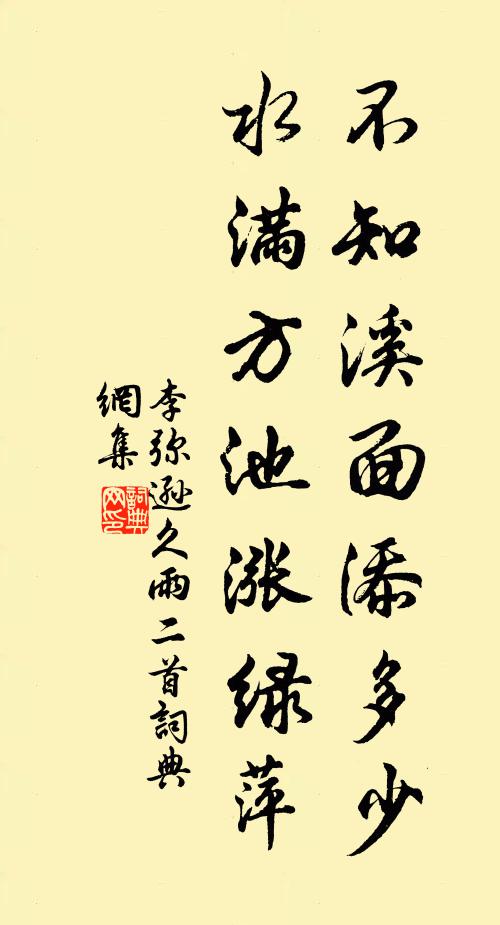 不知溪面添多少
水满方池涨绿萍
李弥逊久雨二首詞典
網集
詞典
网印